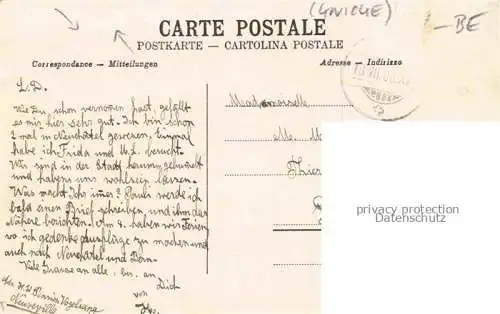 (GVICHE)
-BE
CARTE POSTALE
POSTKARTE — CARTOLINA POSTALE
Correspondance — Mitteilungen
Adresse — Indirizzo
L. D.
Wie Du schon vernomen hast, gefällt
es mir hier sehr gut. Ich bin schon
2 mal in Neuchâtel gewesen. Einmal
habe ich Frida und besucht.
Wir sind in der Stadt herum
und haben uns wohlsein lassen.
Was macht Ich imer? Pauli werde ich
bald einen Brief schreiben und ihm das
Nähere berichten. Vom 4. haben wir Ferien
wo ich gedenke Ausflüge zu machen und
auch nach Neuchâtel und Bern.
Viele Grüsse an alle, bes. an
Dich
von
Neuveville
Mademoiselle
M. M
Thier
privacy protection
Datenschutz